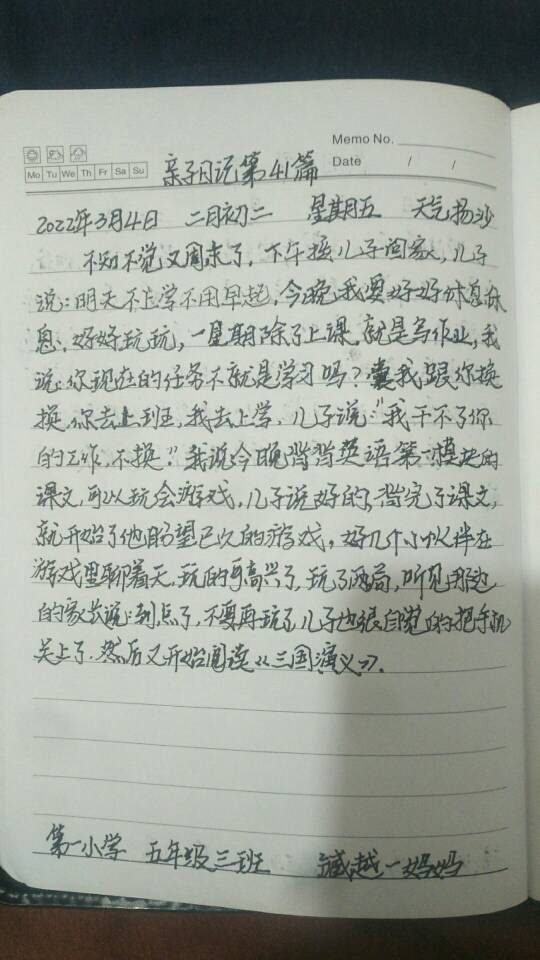 Memo No.
Mo Tu We Th Fr Sa Su
Date / /
亲子日记第41篇
2022年3月4日 二月初二 星期五 天气扬沙
不知不觉又周末了,下午接儿子回家,儿子
说:明天不上学不用早起,今晚我要好好休息休
息,好好玩玩,一星期除了上课就是写作业,我
说:你现在的任务不就是学习吗?我跟你换
换,你去上班,我去上学,儿子说:“我干不了你
的工作,不换”我说今晚背背英语第一模块的
课文,可以玩会游戏,儿子说好的,背完了课文,
就开始了他盼望已久的游戏,好几个小伙伴在
游戏里聊着天,玩的可高兴了,玩了两局,听见那边
的家长说:到点了,不要再玩了,儿子也很自觉的把手机
关上了.然后又开始阅读《三国演义》.
第一小学 五年级三班 臧越一妈妈